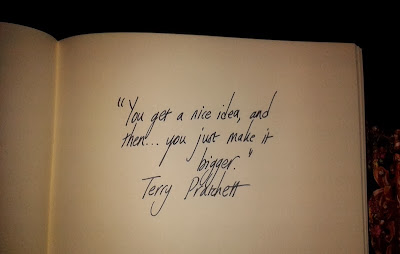 "You get a nice idea, and
then... you just make it
bigger."
Terry Pratchett